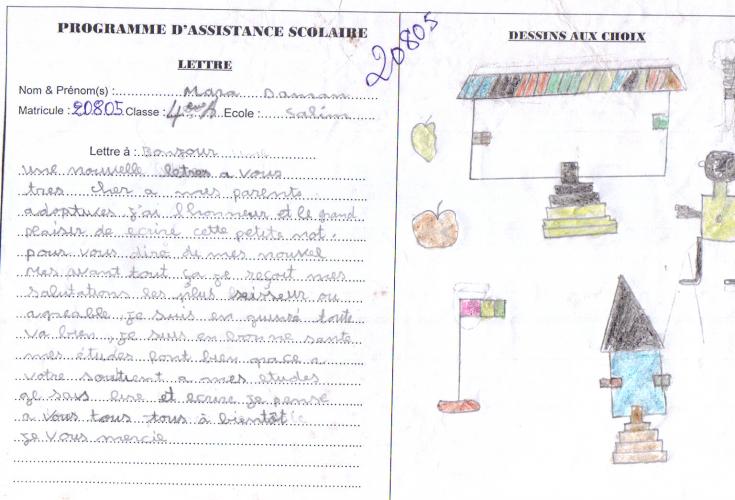 PROGRAMME D'ASSISTANCE SCOLAIRE
LETTRE
Nom & Prénom(s) : Mara Daman
Matricule : 20805 Classe : 4em A Ecole : Salim
Lettre à : Bonjour
une nouvelle letres a vous
tres cher a mes parents
adoptives j'ai l'honneur et le grand
plaisir de ecrire cette petite mot.
pour vous dire de mes nouvel
Mes avant tout ça je reçout mes
salutations les plus ou
agreable, je suis en toute
va bien, je suis en bonne sante
mes études font bien grace a
votre soutient a mes etudes
je sais lire et ecrire je pense
a vous tous tous à bientôt
je vous mercie
20805
DESSINS AUX CHOIX